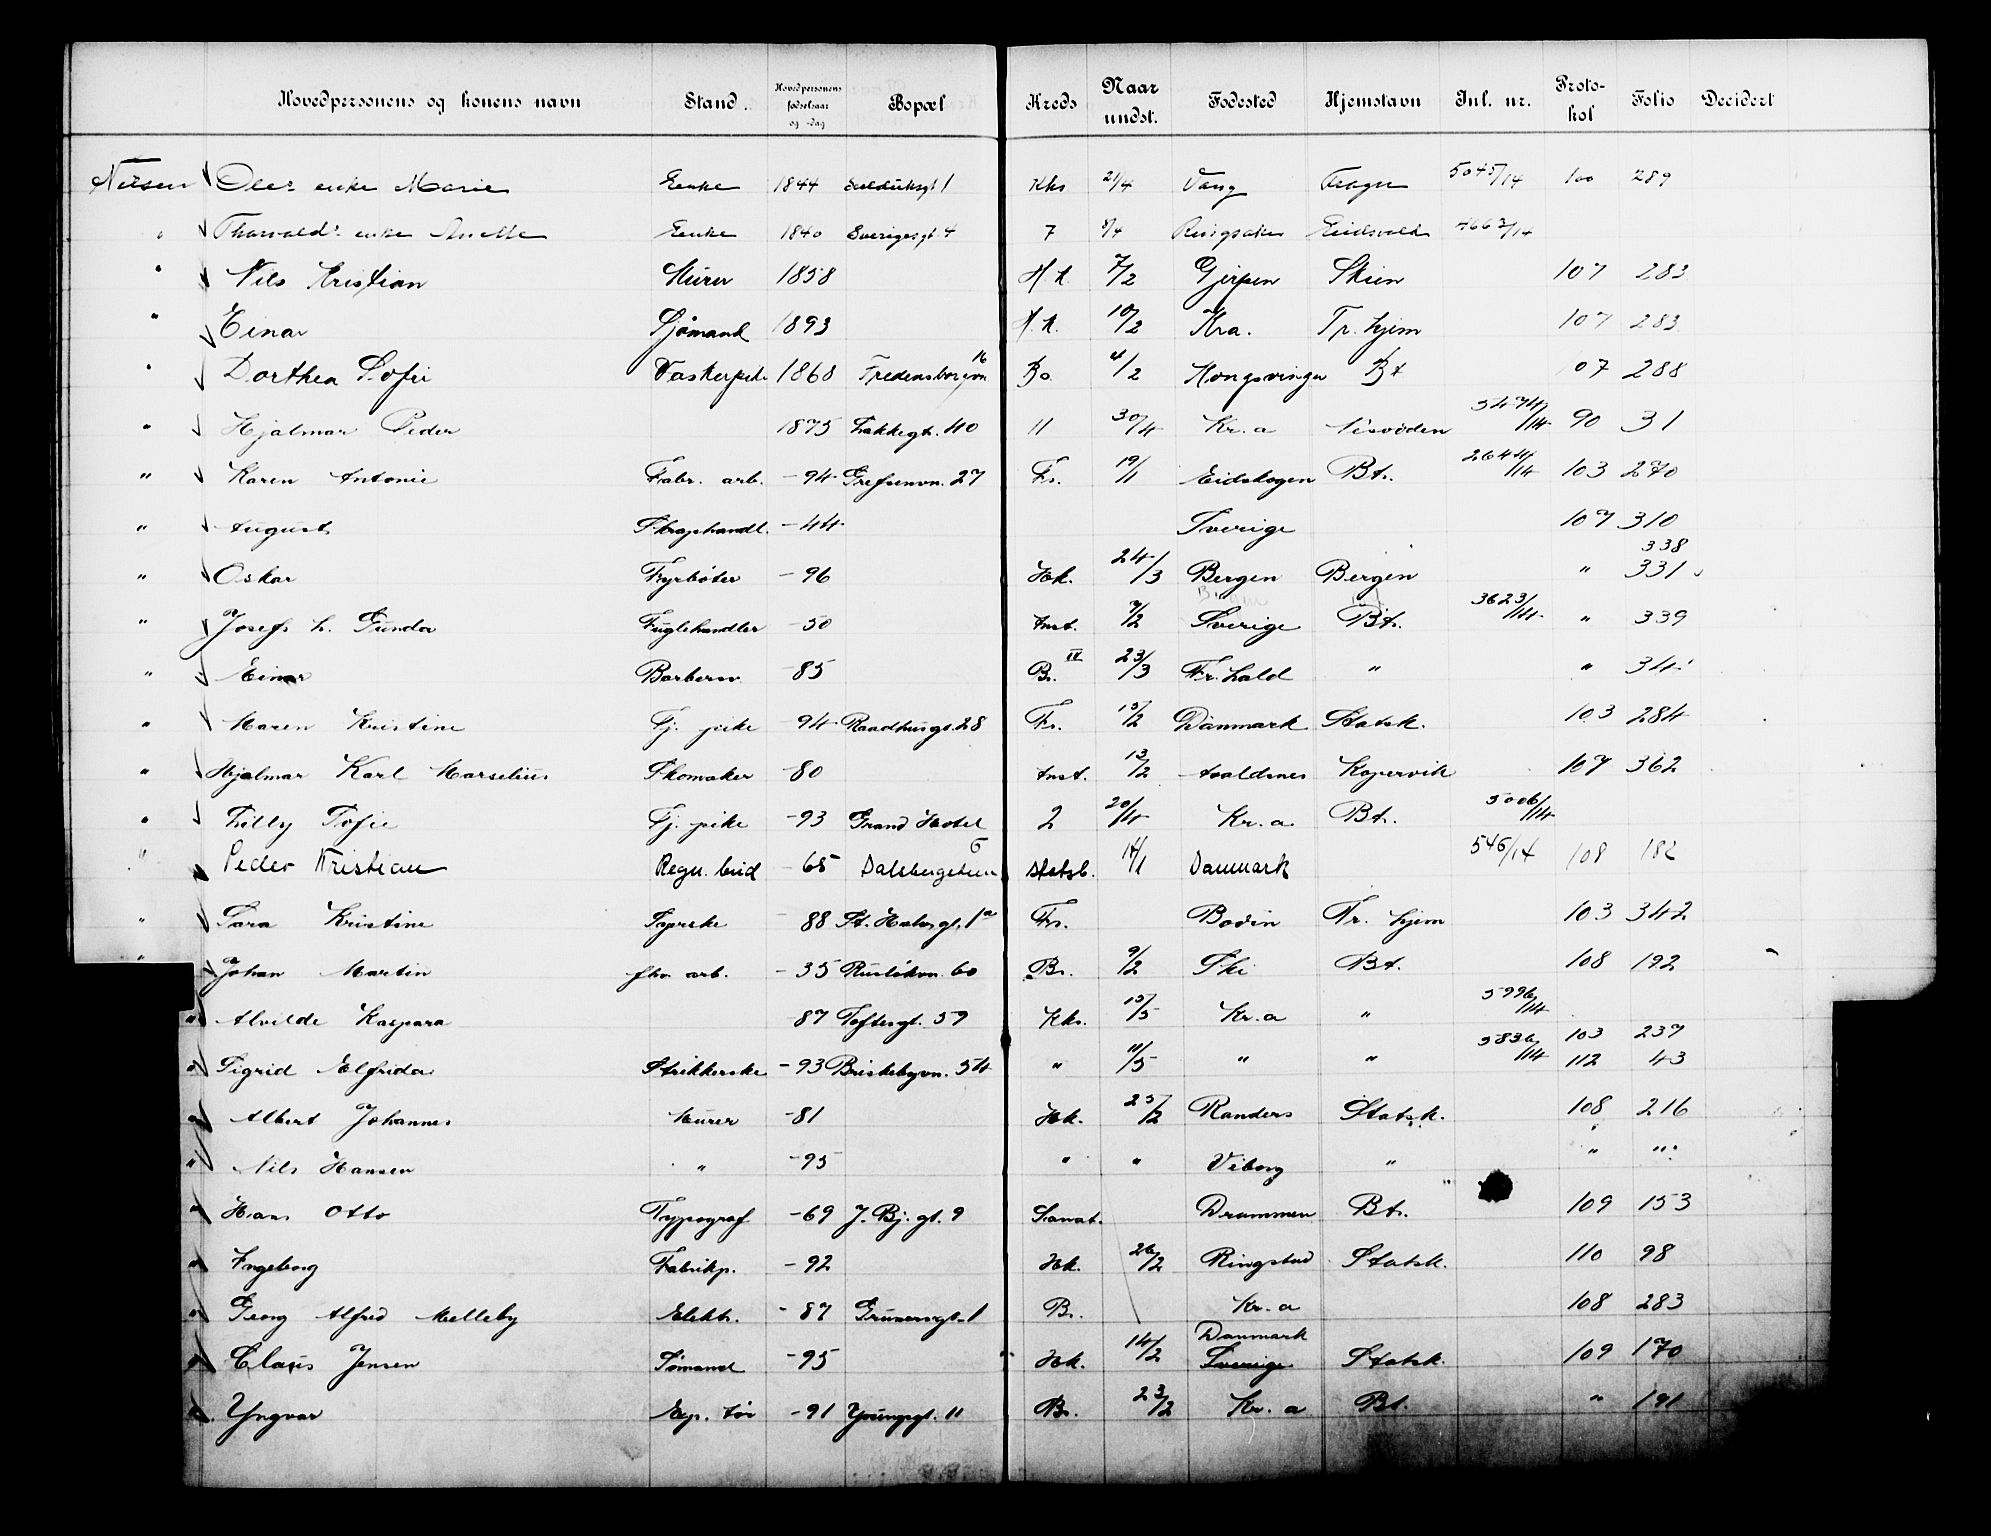 Hovedpersonens og konens navn Stand. Hovedpersonens fødselsaar og -dag Bopæl Kreds Naar undst. Fødested Hjemstavn Inl. nr. Protokol Folio Decidert
Nilsen Oles enke Marie Enke 1844 1 Kks 21/4 Vang 5045/14 100 289
" Thorvalds enke Anette Enke 1840 Sverigesgt 4 7 8/4 Ringsaker Eidsvold 4662/14
" Nils Kristian Murer 1858 H.k. 7/2 Gjerpen Skien 107 283
" Einar Sjømand 1893 H.k. 10/2 Kra. Tr. hjem 107 283
" Dorthea Sofie Vaskerpike 1868 Fredensborgvn 16 Bo. 4/2 Kongsvinger Bt 107 288
" Hjalmar Peder 1875 Lakkegt. 40 11 30/4 Kr.a 5474/14 90 31
" Karen Antonie Fabr. arb. -94 Grefsenvn. 27 Fr. 19/1 Eidskogen Bt. 2644/14 103 270
" August Skraphandl. -44 Sverige 107 310
338
" Oskar Fyrbøter -96 Hk. 24/3 Bergen Bergen " 331
" Josefs h. Gunda Fuglehandler -50 Anst. 7/2 Sverige Bt. 3623/14 " 339
" Einar Barbersv. -85 B. IV 23/3 Fr.hald " " 34
" Maren Kristine Tj. pike -94 Raadhusgt. 28 Fr. 15/2 Danmark Statsk. 103 284
" Hjalmar Karl Marselius Skomaker -80 Anst. 13/2 Avaldsnes Kopervik 107 362
" Lilly Sofie Tj. pike -93 Grand Hotel 2 20/4 Kr.a Bt. 5006/14
" Peder Kristian Regn. bud -65 Dalsbergstien 5 Statsb. 14/1 Danmark 546/14 108 182
" Sara Kristine Syerske -88 St. Halvs.gt. 1a Fr. Bodin Tr. hjem 103 342
" Johan Martin fhv. arb. -35 Ruseløkvn. 60 Br. 9/2 Ski Bt. 108 192
" Alvilde Kaspara -87 Toftesgt. 59 Kks. 15/5 Kr.a " 5996/14
" Sigrid Elfrida Strikkerske -93 Briskebyvn. 54 " 11/5 " " 5836/14 103 237
112 43
" Albert Johannes Murer -81 Hk. 25/2 Randers Statsk. 108 216
" Nils Hansen " -95 " " Viborg " " "
" Hans Otto Typograf -69 J. Bj. gt. 9 Sanat. Drammen Bt. 109 153
" Ingeborg Fabrikp. -92 Hk. 26/2 Ringsted Statsk. 110 98
" Georg Alfred Melleby Elektr. -87 Grünersgt. 1 B. Kr.a 108 283
" Claus Jensen Sømand -95 Hk. 14/2 Danmark Sverige Statsk. 109 170
" Yngvar Exp. tør -91 Youngsgt. 11 Br. 23/2 Kr.a Bt. " 191